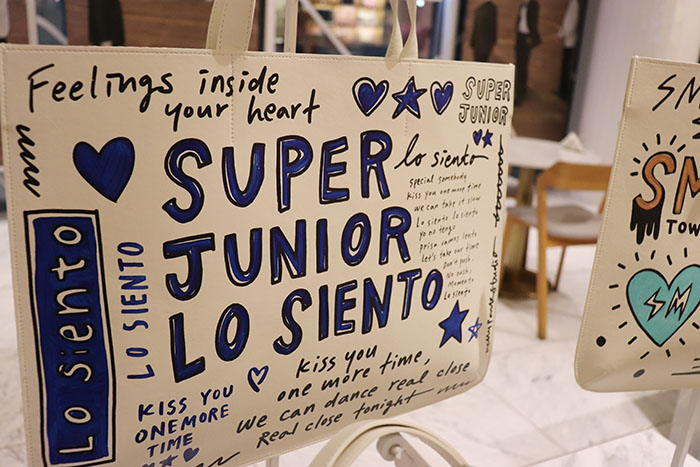 Feelings inside
your heart
SUPER
JUNIOR
SUPER
JUNIOR
LO SIENTO
lo siento
special somebody
kiss you one more time
we can take it slow
Lo siento lo siento
yo no tengo
prisa vamos lento
Let's take our time
Don't push,
No push,
Momento
Lo siento
Lo siento
LO SIENTO
KISS YOU
ONEMORE
TIME
Kiss you
one more time,
we can dance real close
Real close tonight
SM
SM
TOW
SM